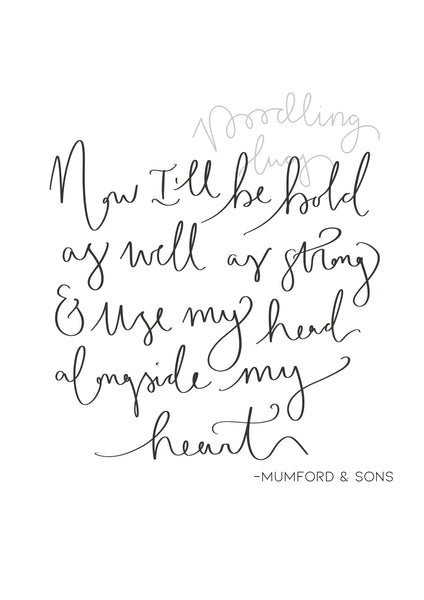 Doodling
lucy
Now I'll be bold
as well as strong
& use my head
alongside my
heart
-MUMFORD & SONS